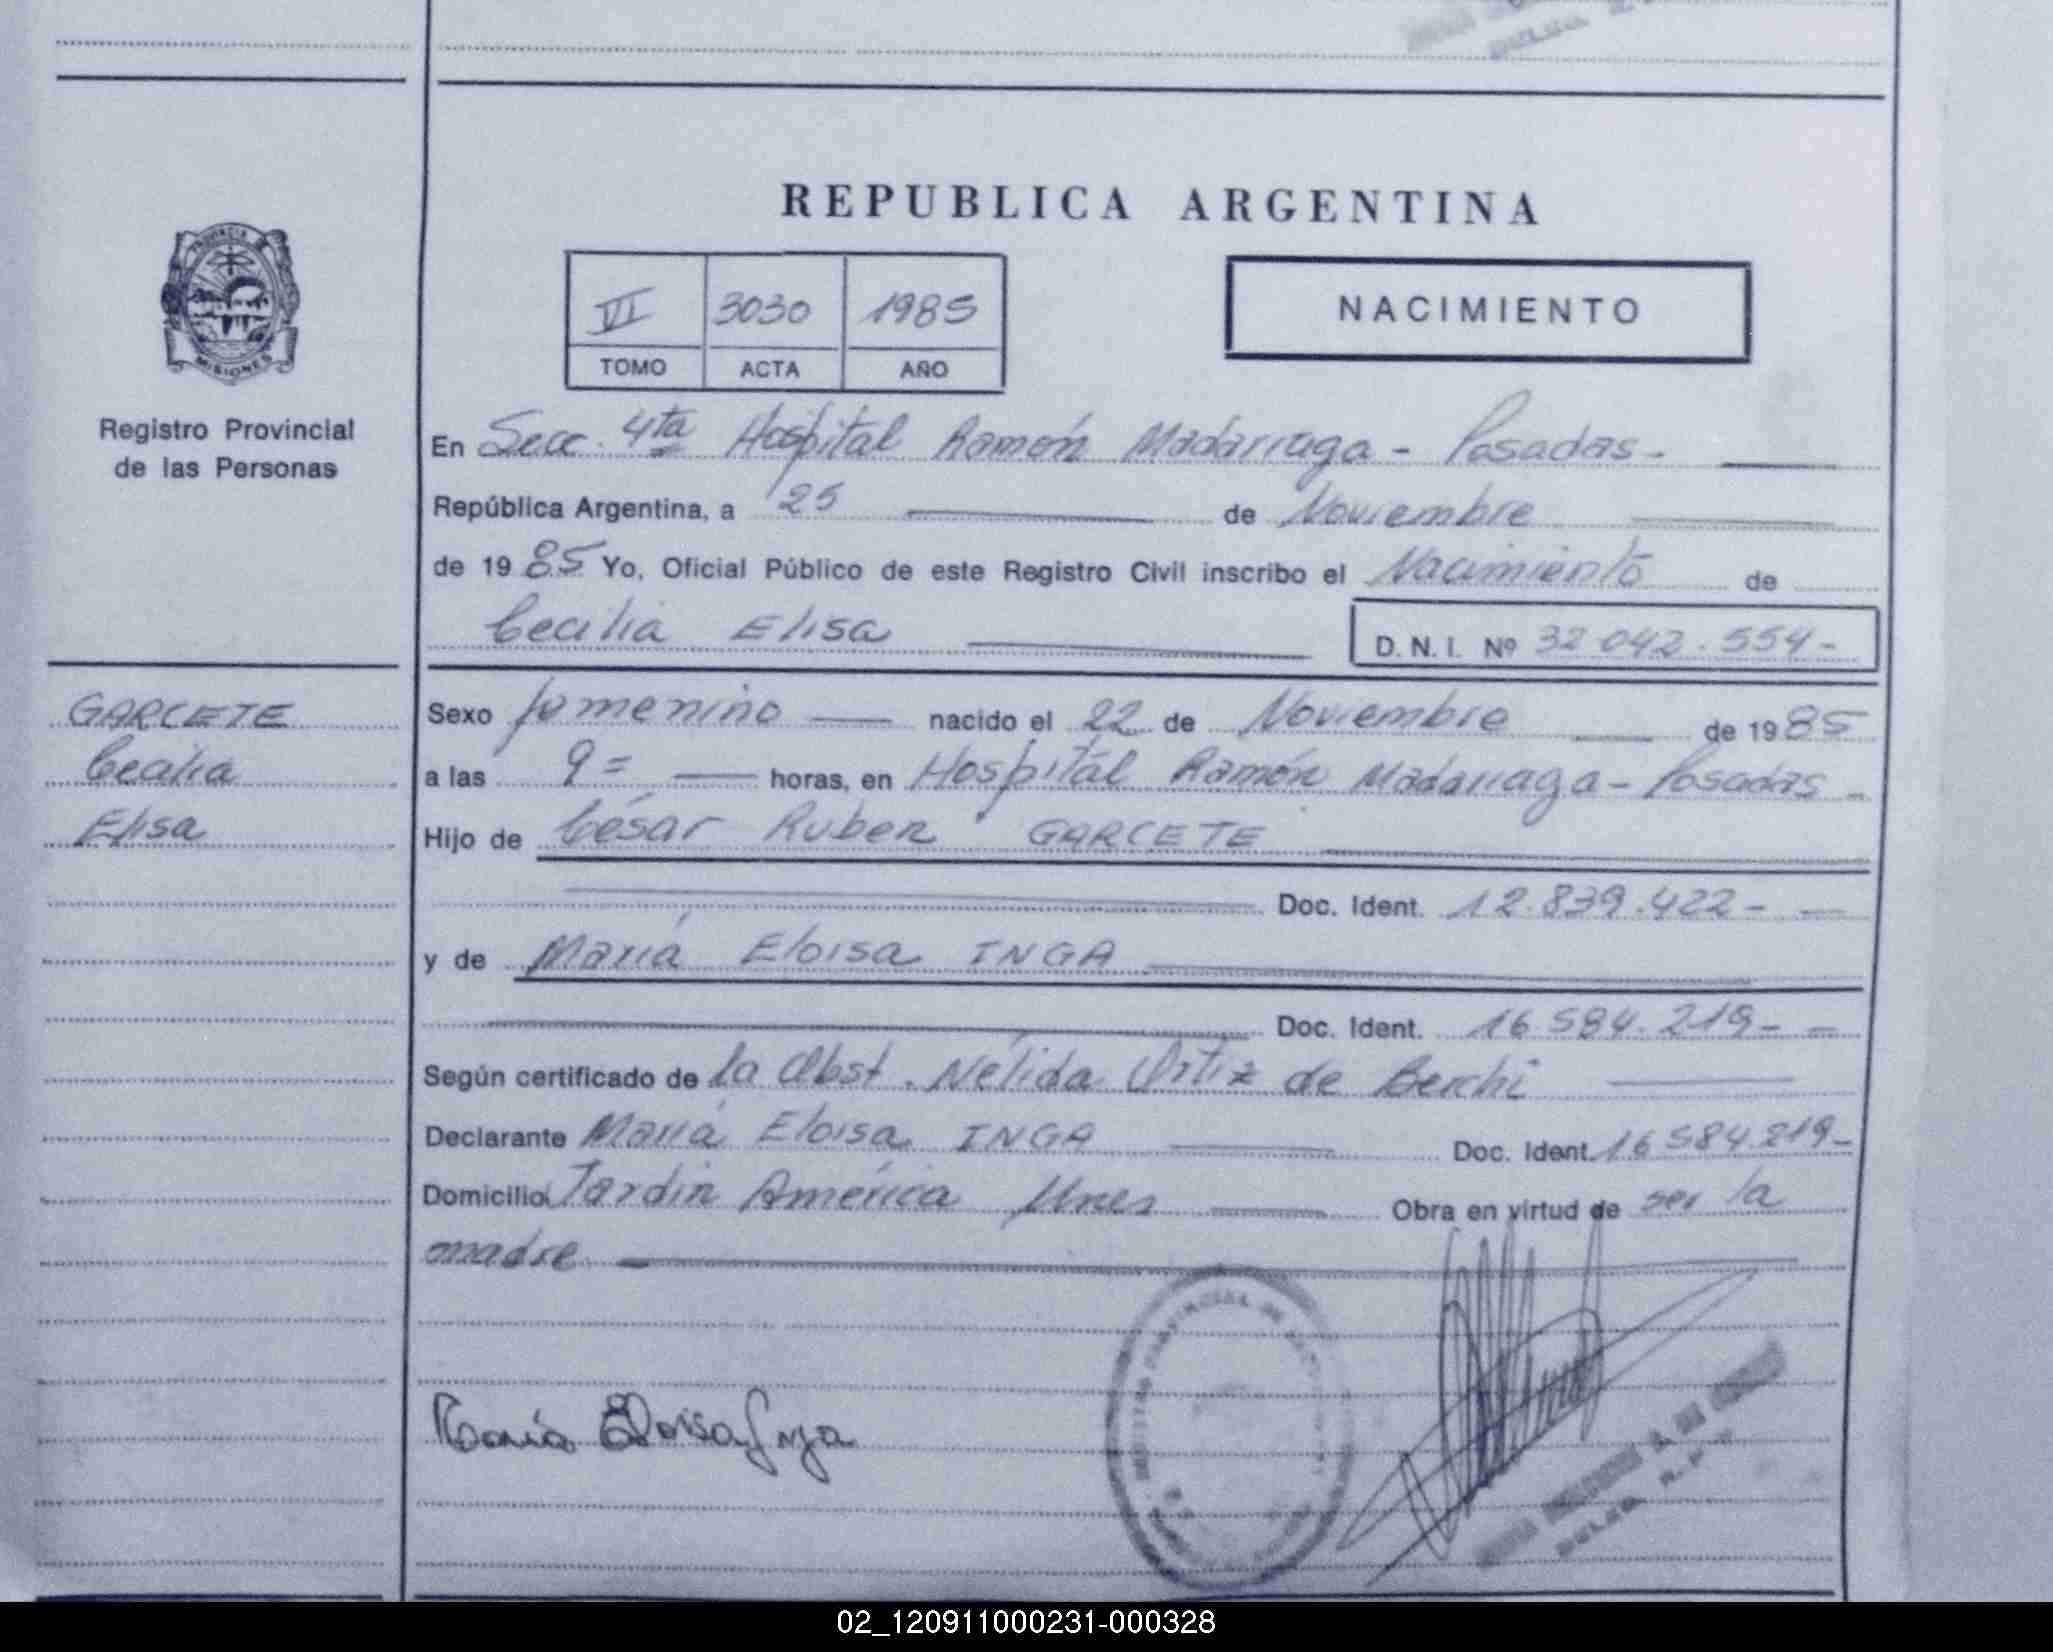 REPUBLICA ARGENTINA
PROVINCIA DE
MISIONES
VI 3030 1985
TOMO ACTA AÑO
NACIMIENTO
Registro Provincial
de las Personas
En Secc. 4ta Hospital Ramón Madarriaga - Posadas -
República Argentina, a 25 de Noviembre
de 1985 Yo, Oficial Público de este Registro Civil inscribo el Nacimiento de
Cecilia Elisa
D. N. I. Nº 32.042.554-
GARCETE
Cecilia
Elisa
Sexo femenino nacido el 22 de Noviembre de 1985
a las 9= horas, en Hospital Ramón Madariaga - Posadas -
Hijo de César Ruben GARCETE
Doc. Ident. 12.839.422-
y de María Eloisa INGA
Doc. Ident. 16.584.219-
Según certificado de la Obst. Nélida Ortiz de Berchi
Declarante María Eloisa INGA Doc. Ident. 16.584.219-
Domicilio Jardin América Mnes Obra en virtud de ser la
madre
María Eloisa Inga
02_120911000231-000328